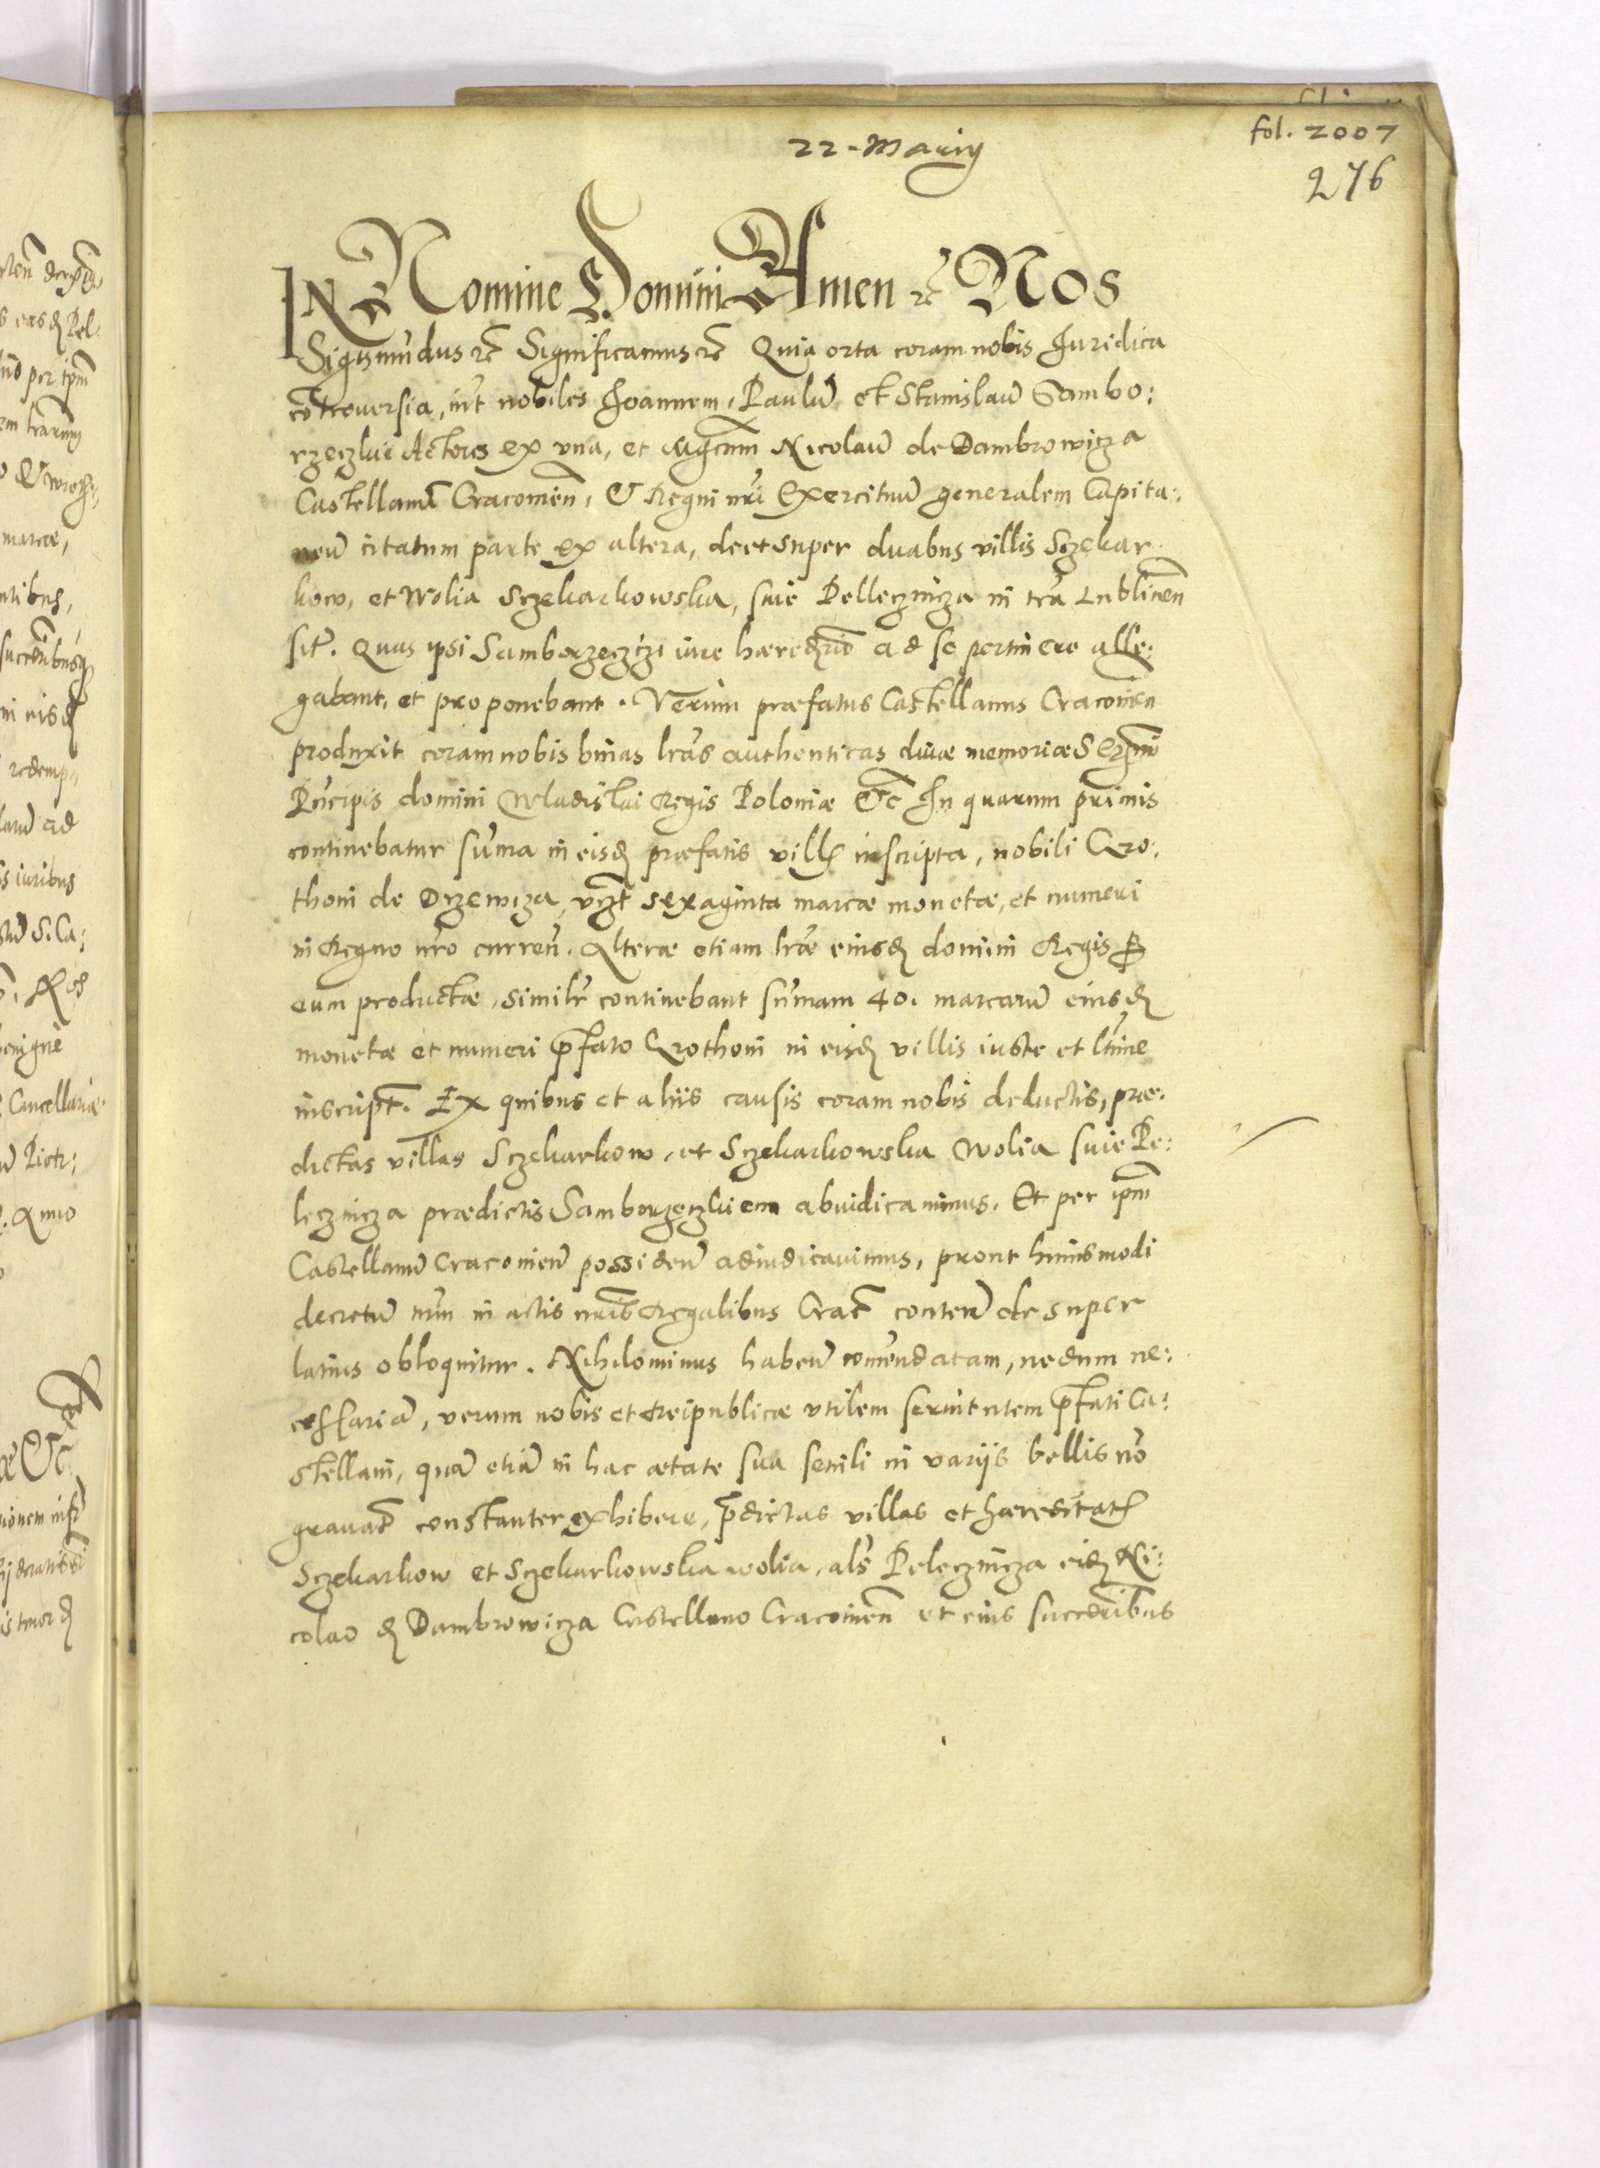 fol. 2007
22 - Marty
276
IN Nomine Domini Amen etc̃ NOS
Sigismũdus etc̃ Significamus etc̃ Quia orta coram nobis Iuridica
cõtroversia, int̃ nobiles Ioannem, Paulũ et Stanislaũ Sambo:
rzeczkie Actores ex vna, et Mgcũm Nicolaũ de Dambrowicza
Castellanũ Cracovien̄, & Regni nrĩ Exercituũ generalem Capita:
neũ citatum parte ex altera, de et super duabus villis Sczekar
kow, et Wolia Sczekarkowska, siue Pellecznicza in trã Lublinen̄
sit̃. Quas ipsi Samborzeczczi iure hæred̃rio ad se pertinere alle:
gabant, et proponebant. Verum præfatus Castellanus Cracovien̄
produxit coram nobis binas lr̃as authenticas divæ memoriæ Serm̃i
Prĩcipis domini Wladislai Regis Poloniæ &c̃ In quarum primis
continebatur sum̃a in eisd̃ præfatis villis inscripta, nobili Cro:
thoni de Drzewicza, vczt̃ sexaginta marcæ monetæ, et numeri
in Regno nrõ curren̄. Alteræ etiam lr̃æ eiusd̃ domini Regis p
eum productæ, similr̃ continebant sum̃am 40. marcarũ eiusd̃
monetæ et numeri p̃fato Crothoni in eisd̃ villis iuste et ltĩme
inscript̃. Ex quibus et aliis causis coram nobis deductis, præ:
dictas villas Sczekarkow, et Sczekarkowska Wolia siue Pe:
lecznicza prædictis Samborzeczkiem abiudicavimus. Et per ipm̃
Castellanũ Cracovien̄ possiden̄ adiudicavimus, prout huiusmodi
decretũ nrm̃ in actis nrĩs Regalibus Crac̃ conten̄ desuper
latius obloquitur. Nihilominus haben̄ com̃endatam, nedum ne:
cessariã, verum nobis et Reipublicæ vtilem seruitutem p̃fati Ca:
stellani, quã etiã in hac ætate sua senili in variis bellis nõ
grauat̃ constanter exhibere, p̃dictas villas et hæreditates
Sczekarkow et Sczekarkowska wolia, als̃ Pelecznicza eid̃ Ni:
colao d̃ Dambrowicza Castellano Cracovien̄ et eius succesribus